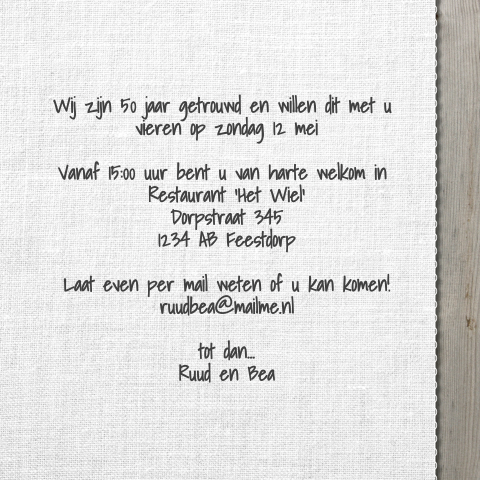 Wij zijn 50 jaar getrouwd en willen dit met u
vieren op zondag 12 mei
Vanaf 15:00 uur bent u van harte welkom in
Restaurant 'Het Wiel'
Dorpstraat 345
1234 AB Feestdorp
Laat even per mail weten of u kan komen!
ruudbea@mailme.nl
tot dan...
Ruud en Bea